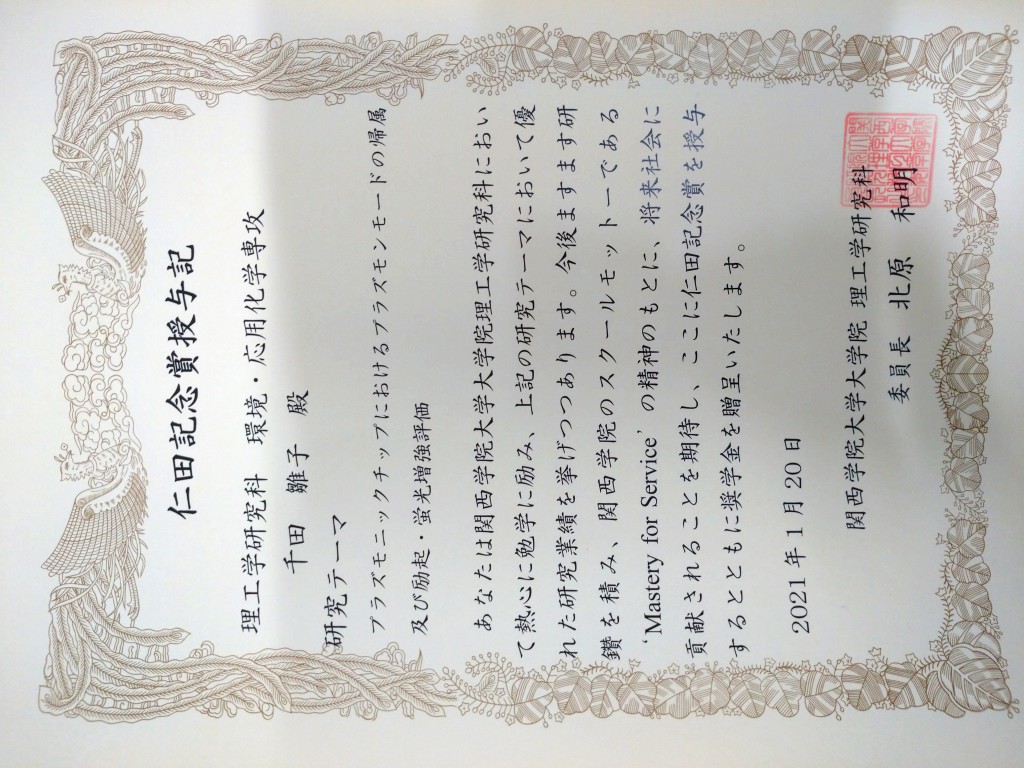 仁田記念賞授与記
理工学研究科　環境・応用化学専攻
千田　雛子　殿
研究テーマ
プラズモニックチップにおけるプラズモンモードの帰属
及び励起・蛍光増強評価
あなたは関西学院大学大学院理工学研究科におい
て熱心に勉学に励み、上記の研究テーマにおいて優
れた研究業績を挙げつつあります。今後ますます研
鑽を積み、関西学院のスクールモットーである
‘Mastery for Service’の精神のもとに、将来社会に
貢献されることを期待し、ここに仁田記念賞を授与
するとともに奨学金を贈呈いたします。
2021年1月20日
関西学院大学大学院　理工学研究科
委員長　北原　和明